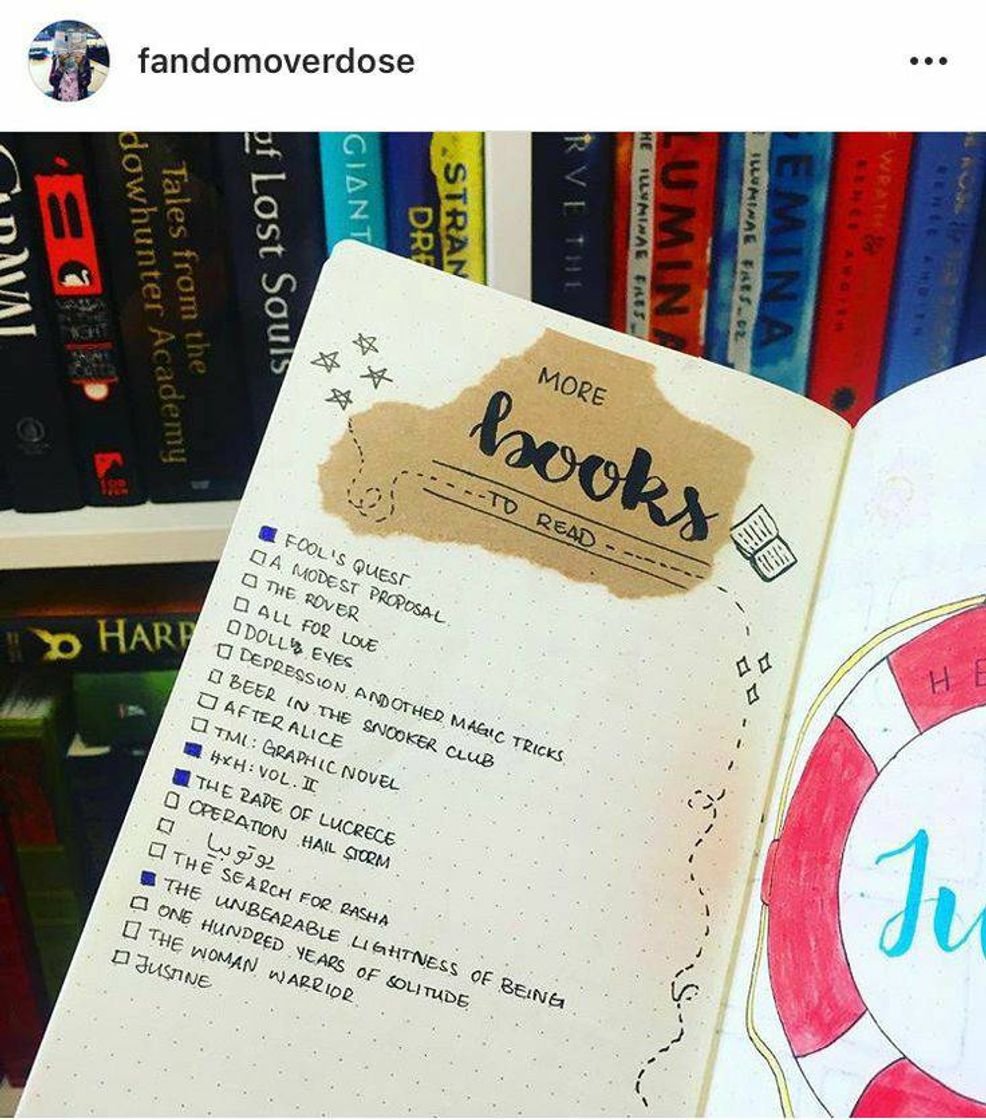 fandomoverdose
CARVAL
Tales from the
dowhunter Academy
of Lost Souls
GIANT
STRAN
DRE
RVE THE
LUMINA
THE ILLUMINAE FILES_
GEMINA
ILLUMINAE FILES_02
RENEE AHDIEH
RENEE AHDIEH
HARR
MORE
books
TO READ
FOOL'S QUEST
A MODEST PROPOSAL
THE ROVER
ALL FOR LOVE
DOLL'S EYES
DEPRESSION AND OTHER MAGIC TRICKS
BEER IN THE SNOOKER CLUB
AFTER ALICE
TMI: GRAPHIC NOVEL
HXH: VOL. II
THE RAPE OF LUCRECE
OPERATION HAIL STORM
يوتوبيا
THE SEARCH FOR RASHA
THE UNBEARABLE LIGHTNESS OF BEING
ONE HUNDRED YEARS OF SOLITUDE
THE WOMAN WARRIOR
JUSTINE
HE
Ju